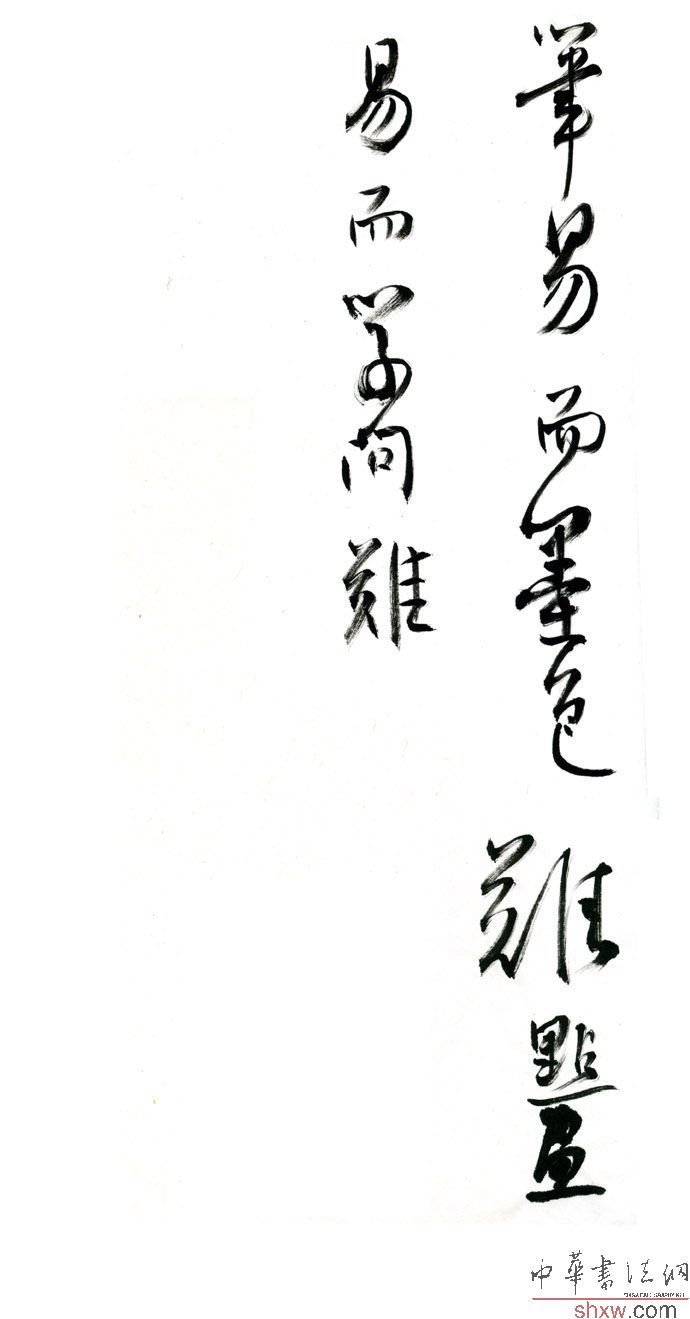 筆易而墨色難點畫
易而学问難
中華書法网
shxw.com